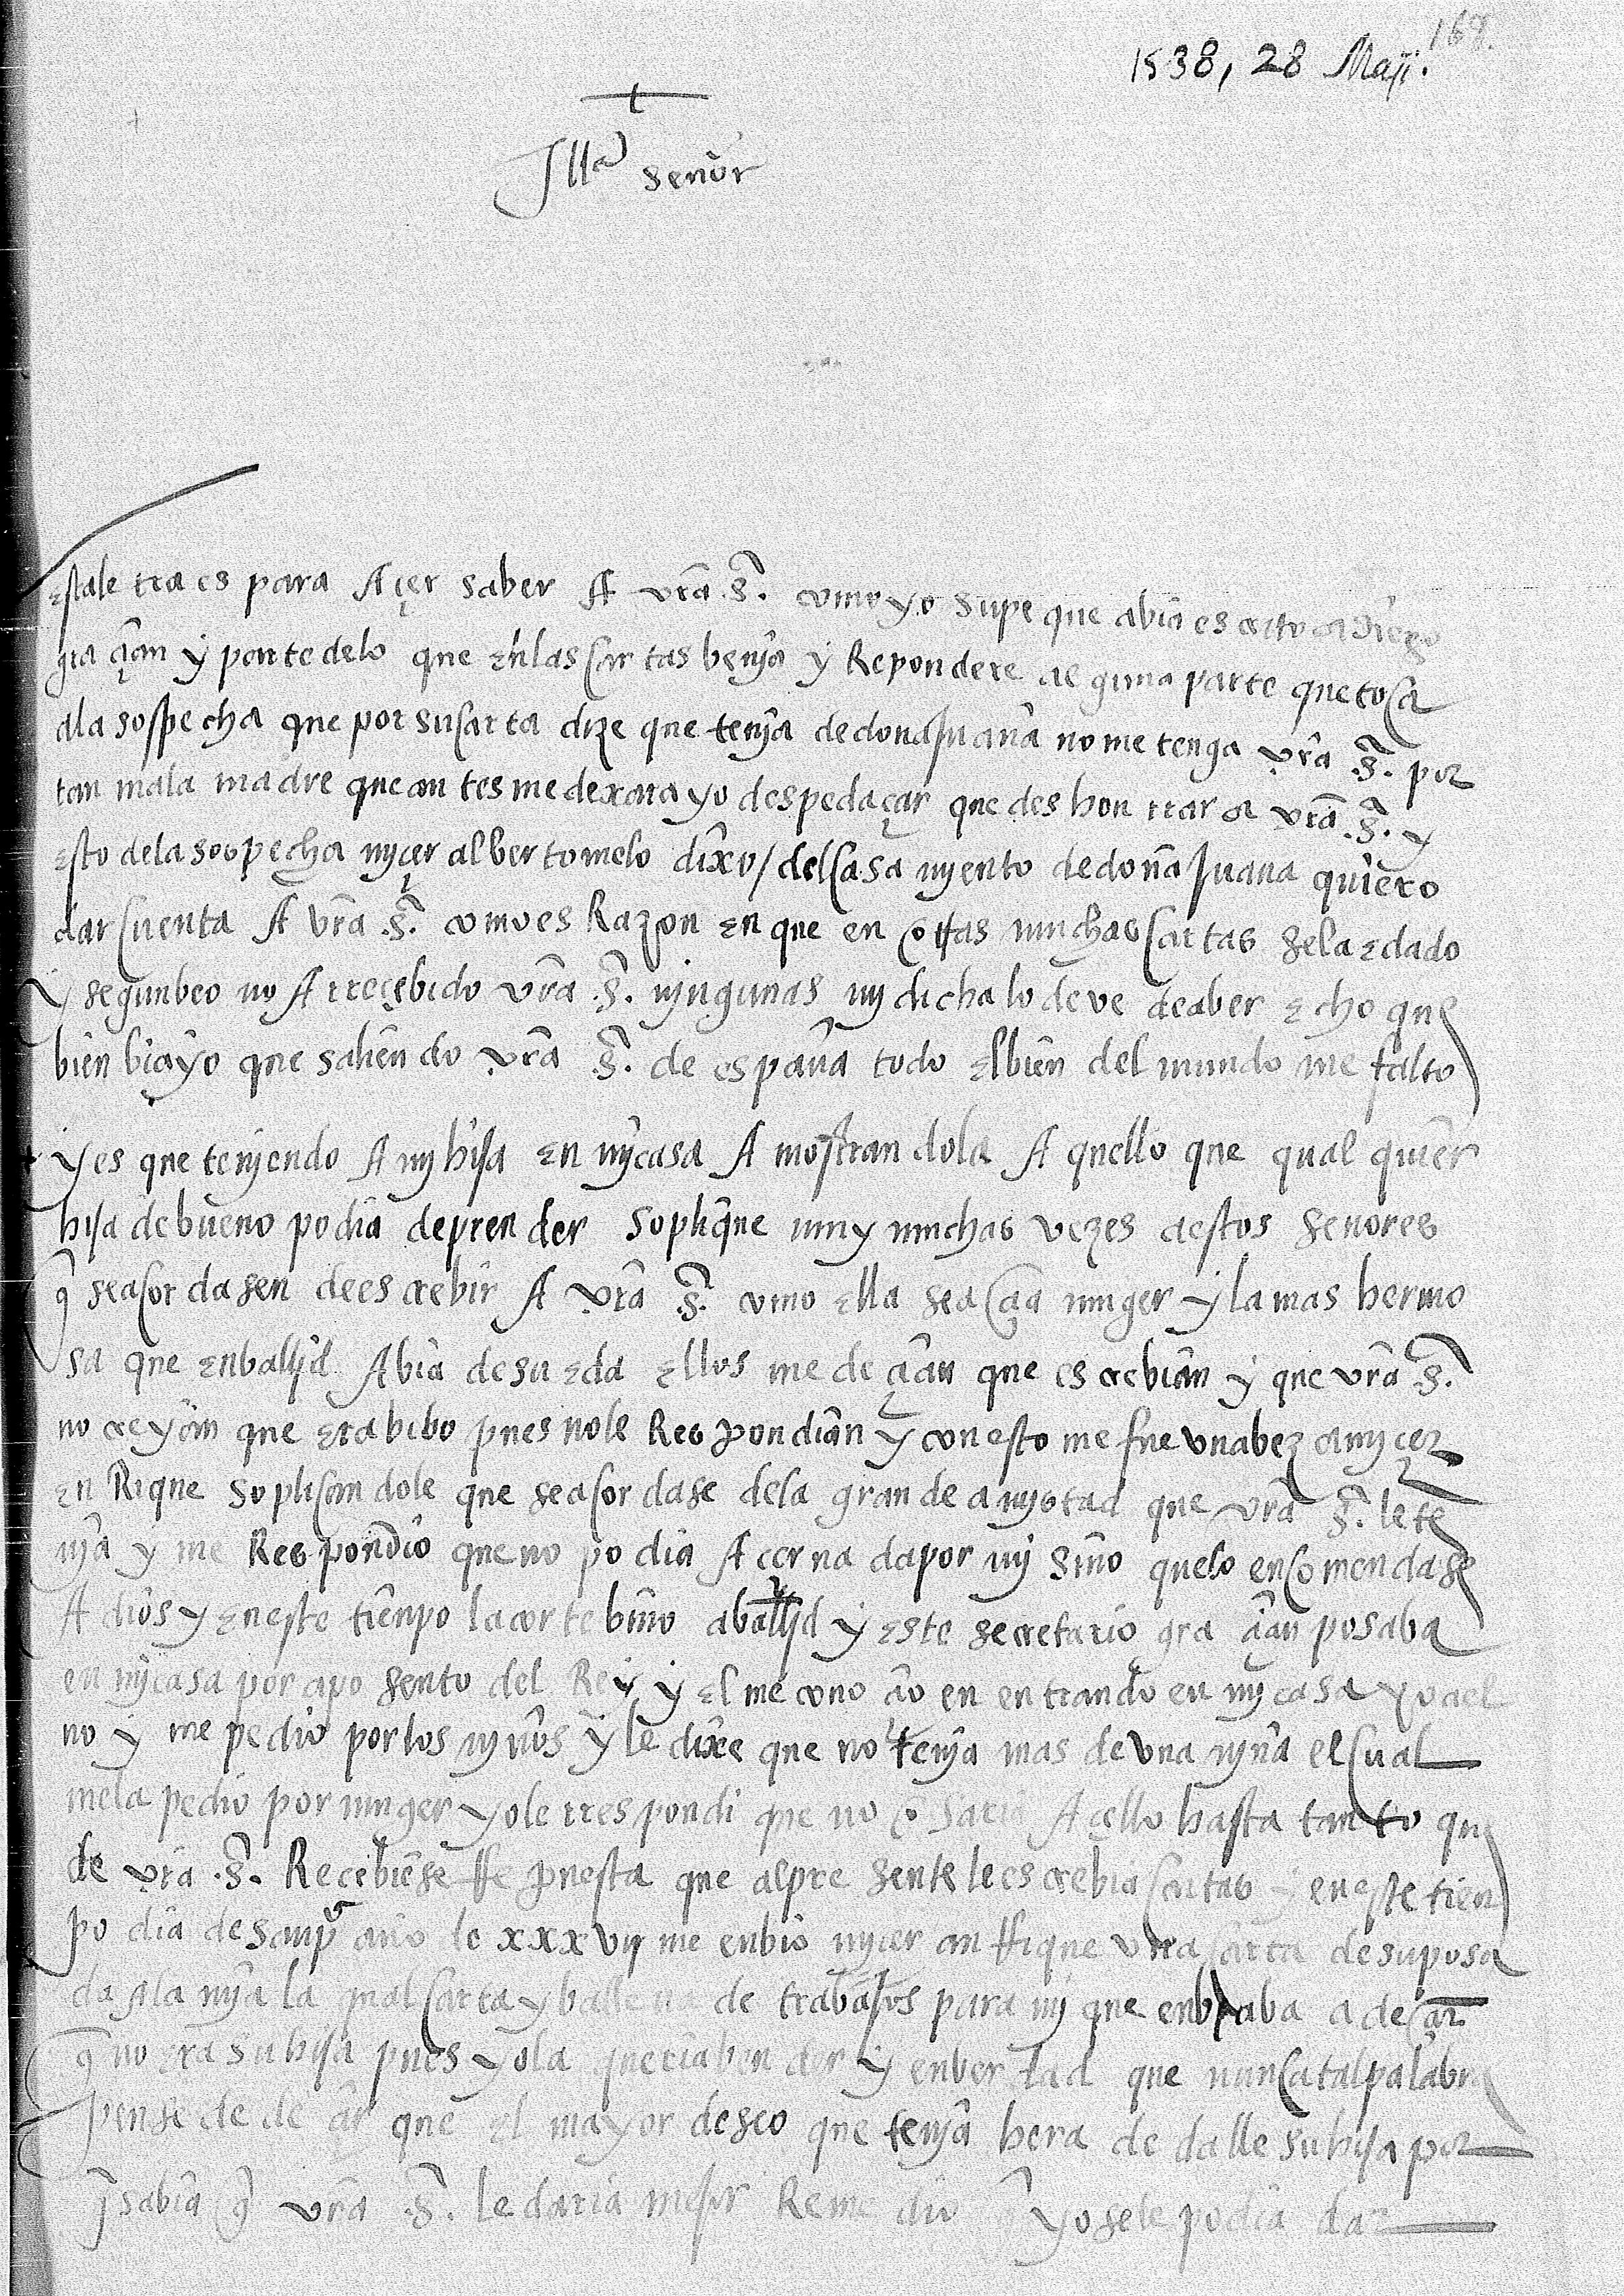 168.
1538, 28 Maji.
+
Illᵉ señor
esta letra es para Açer saber A vrã .S. como yo supe que abia escrito a diego
graçian y parte de lo que en las cartas benja y Repondere alguna parte que toca
a la sospecha que por su carta dize que tenja de dona Juana no me tenga vrã .S. por
tan mala madre que antes me dexara yo despedaçar que deshonrrar a vrã .S. y
esto de la sospecha mjçer alberto me lo dixo / del casamyento de doña Juana quiero
dar cuenta A vrã .S. como es Razon en que en otras muchas cartas se la e dado
y segun beo no A rreçebido vrã .S. njngunas mj dicha lo deve de aber echo que
bien bia yo que saliendo vrã .S. de españa todo el bien del mundo me falto
y es que tenjendo A mj hija en mj casa A mostrandola Aquello que qualquier
hija de bueno podia deprender soplique muy muchas vezes a estos señores
q̃ se acordasen de escrebir A vrã .S. como ella se acia muger y la mas hermo
sa que en balljd Abia de su eda ellos me deçian que escrebian y que vrã .S.
no creyan que era bibo pues no le Respondian y con esto me fue una bez a mjçer
enRique soplicandole que se acordase de la grande amjstad que vrã .S. le te
nja y me Respondio que no podia Acer nada por mj sino que lo encomendase
A dios y en este tienpo la corte bino a balljd y este secretario graçian posaba
en mj casa por aposento del Rey y el me conoçio en entrando en mj casa yo a el
no y me pedio por los njños y le dixe que no tenja mas de una njña el cual
me la pedio por muger yo le rrespondi que no osaria Acello hasta tanto que
de vrã .S. Recebiese rrepuesta que al presente le escrebia cartas y en este tien
po dia de san pº año de xxxvij me enbio mjçer anrrique una carta de su posa
da a la mja la qual carta y ballena de trabajos para mj que enbiaba a deçir
q̃ no era su hija pues yo la queria bender y en berdad que nunca tal palabra
pense de deçir que el mayor deseo que tenja hera de dalle su hija por
q̃ sabia q̃ vrã .S. le daria mejor Remedio q̃ yo se le podia dar